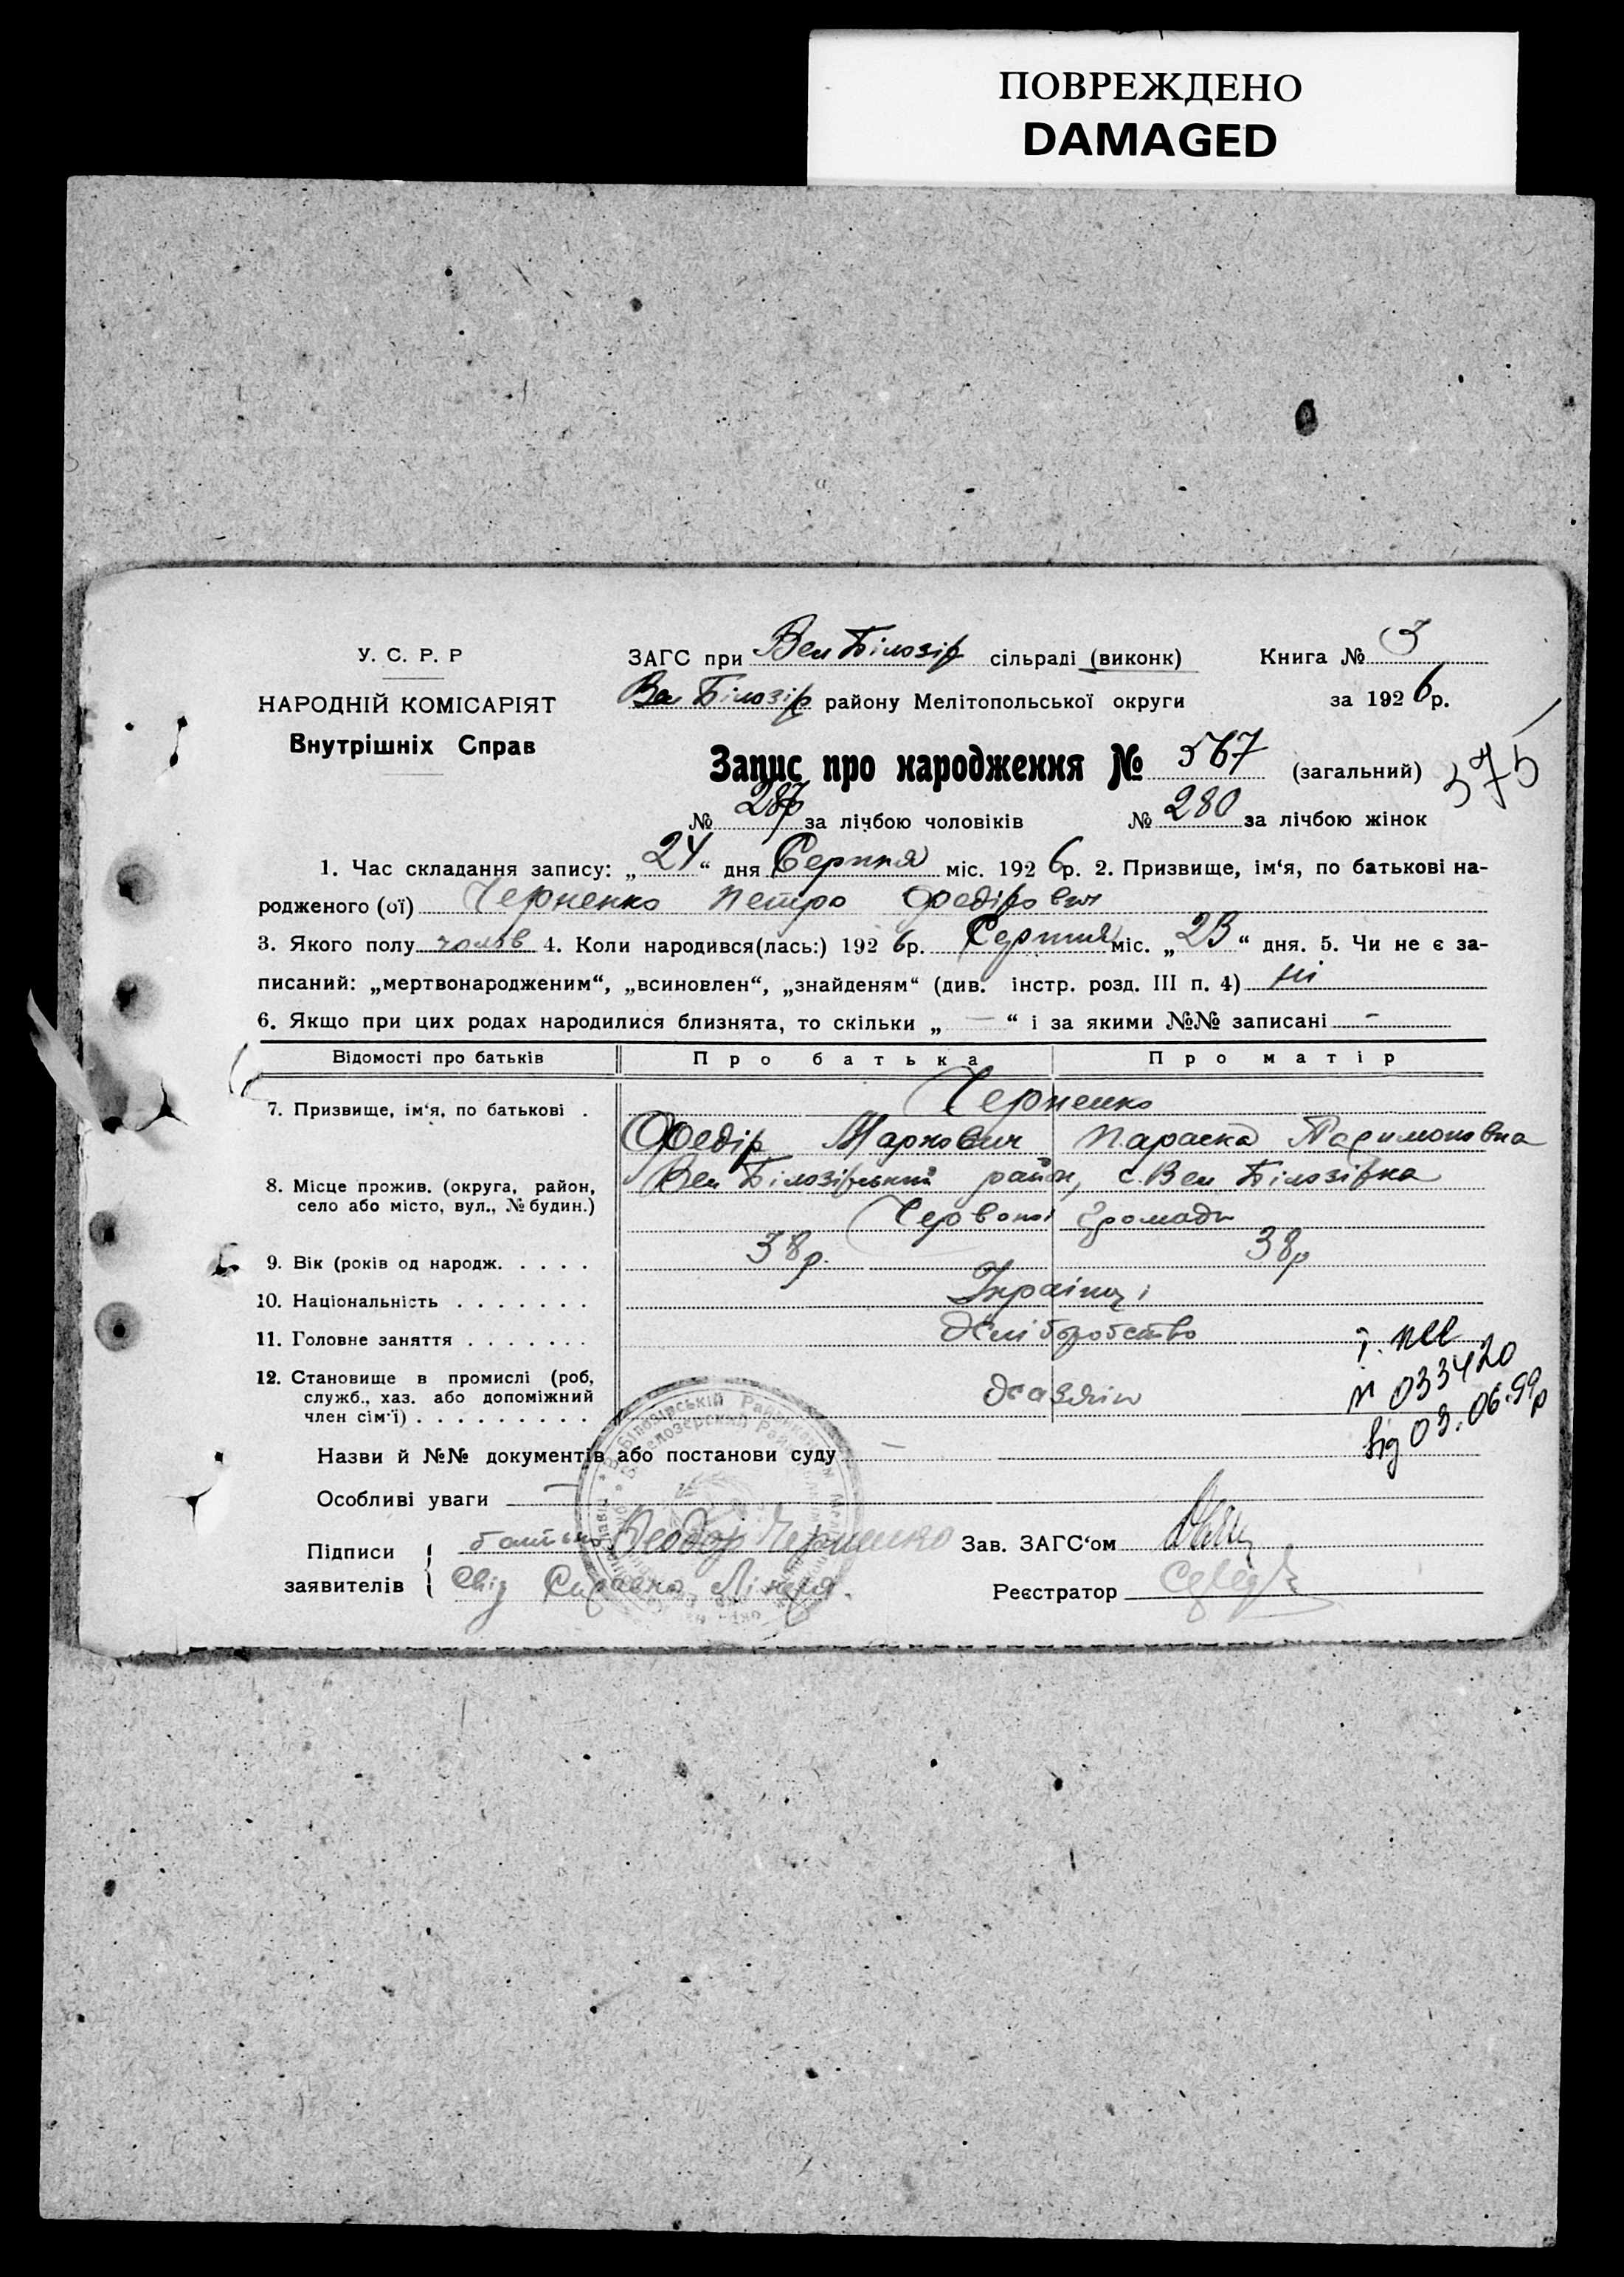 ПОВРЕЖДЕНО
DAMAGED
У. С. Р. Р
НАРОДНІЙ КОМІСАРІЯТ
Внутрішніх Справ
ЗАГС при Вел Білозір сільраді (виконк) Книга № 3
Вел Білозір району Мелітопольської округи за 1926р.
Запис про народження № 567 (загальний)
375
№ 287 за лічбою чоловіків № 280 за лічбою жінок
1. Час складання запису: „24“ дня Серпня міс. 1926р. 2. Призвище, ім‘я, по батькові на-
родженого (ої) Черненко Петро Федірович
3. Якого полу чолов 4. Коли народився(лась:) 1926р. Серпня міс. „23“ дня. 5. Чи не є за-
писаний: „мертвонародженим“, „всиновлен“, „знайденям“ (див. інстр. розд. III п. 4) ні
6. Якщо при цих родах народилися близнята, то скільки „ — “ і за якими №№ записані -
Відомості про батьків Про батька Про матір
7. Призвище, ім‘я, по батькові . Черненко
Федір Маркович Параска
8. Місце прожив. (округа, район, село або місто, вул., № будин.) Вел Білозірський район, с. Вел Білозірка
Червоної Громади
9. Вік (років од народж. . . . . 38р. 38р
10. Національність . . . . . . . Українці
11. Головне заняття . . . . . . . Хліборобство
12. Становище в промислі (роб, служб., хаз. або допоміжний член сім‘ї) . . . . . . . . . Хазяїн
№ 033420
від 03.06.99р
Назви й №№ документів або постанови суду —
Особливі уваги —
Підписи заявителів { батько Феодор Черненко
Свід
Зав. ЗАГС‘ом
Реєстратор